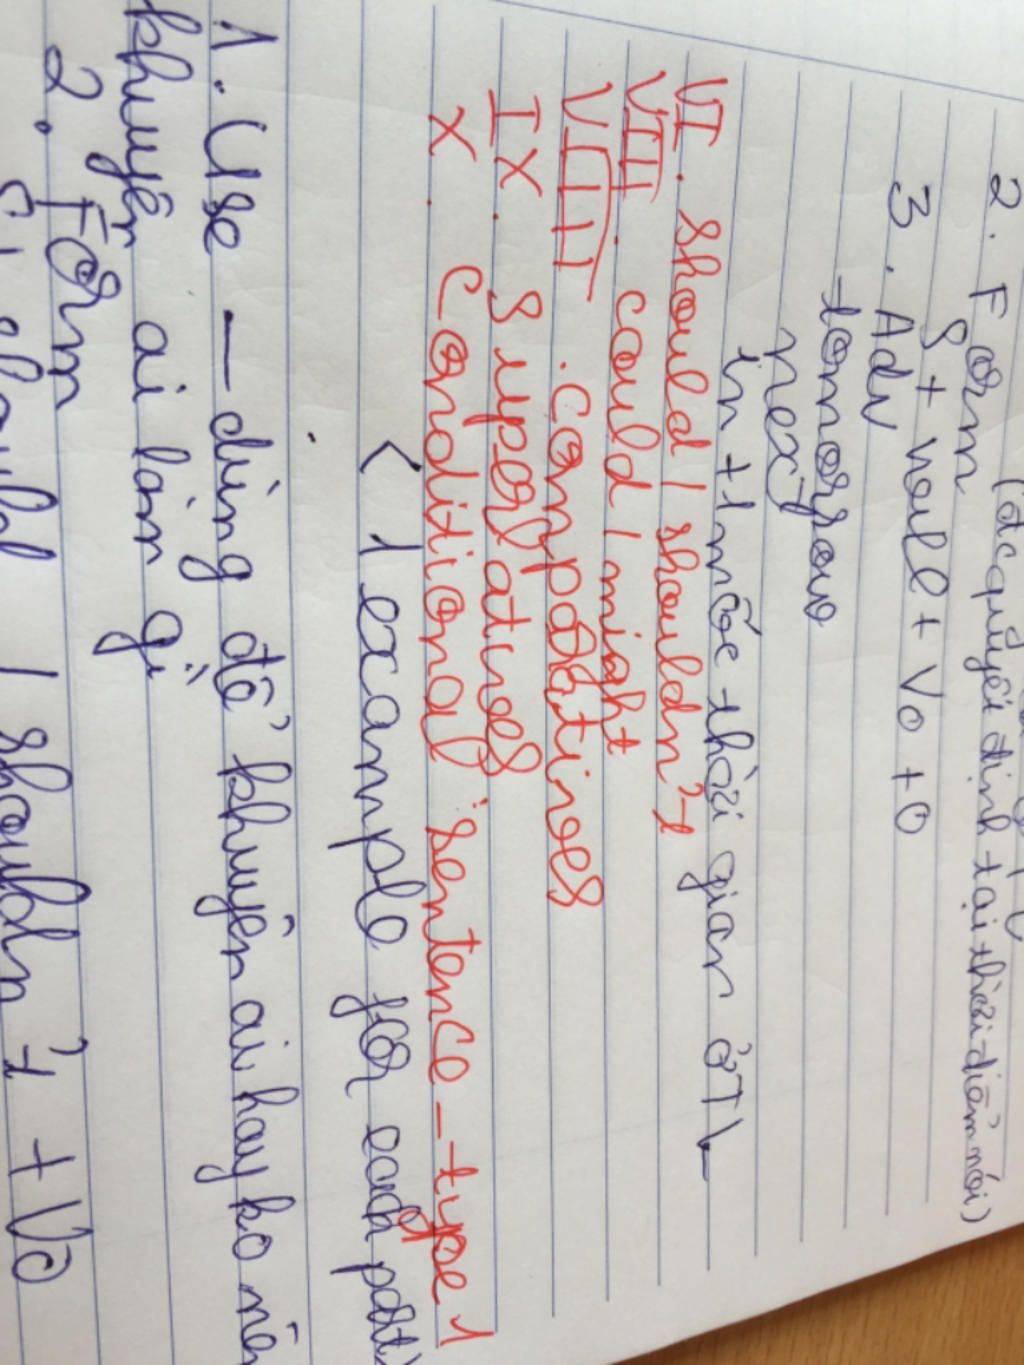 (đc quyết định tại thời điểm nói)
2. Form
S + will + Vo + O
3. Adv
tomorrow
next
in + 1 mốc thời gian ở TL
VI. should / shouldn't
VII. could / might
VIII. comparatives
IX. superlatives
X. Conditional sentence - type 1
< 1 example for each part)
1. Use - dùng để khuyên ai hay ko nên
khuyên ai làm gì
2. Form
should / shouldn't + Vo